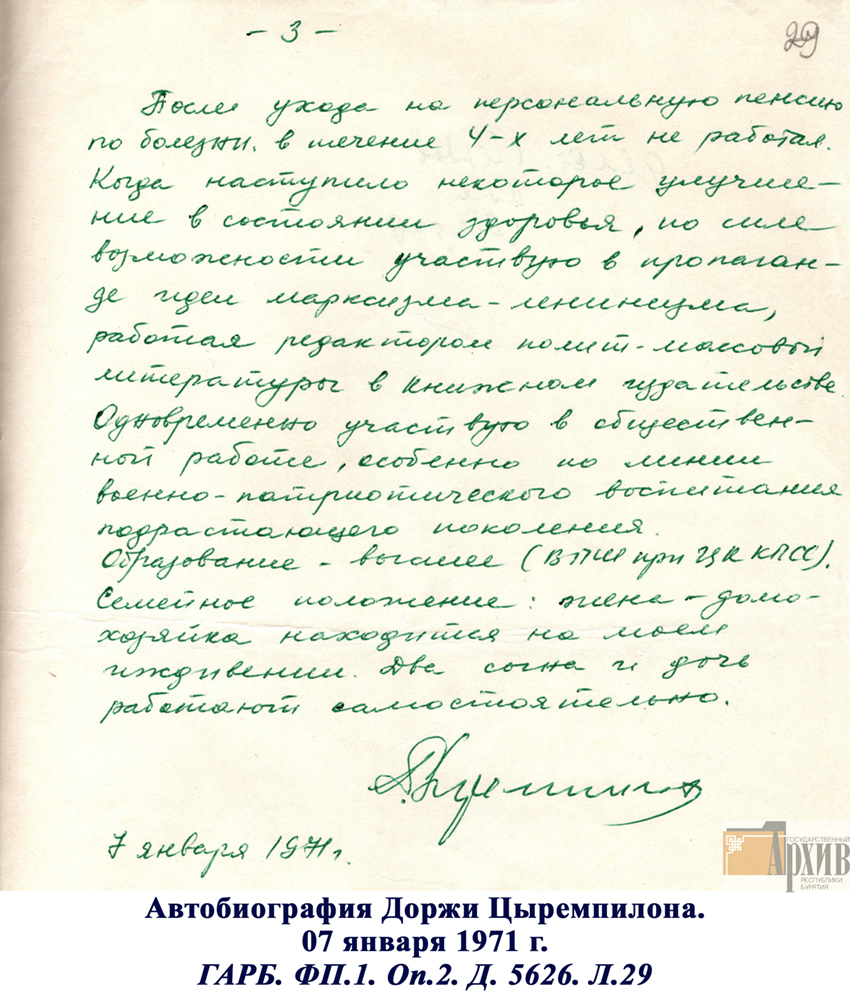 - 3 -
29
После ухода на персональную пенсию
по болезни. в течение 4-х лет не работал.
Когда наступило некоторое улучше-
ние в состоянии здоровья, по силе
возможности участвую в пропаган-
де идеи марксизма-ленинизма,
работая редактором полит-массовый
литературы в книжном издательстве.
Одновременно участвую в обществен-
ной работе, особенно по линии
военно-патриотического воспитания
подрастающего поколения.
Образование - высшее (ВПШ при ЦК КПСС).
Семейное положение: жена-домо-
хозяйка находится на моем
иждивении. Два сына и дочь
работают самостоятельно.
7 января 1971г.
ГОСУДАРСТВЕННЫЙ
АРХИВ
РЕСПУБЛИКИ
БУРЯТИЯ
Автобиография Доржи Цыремпилона.
07 января 1971 г.
ГАРБ. ФП.1. Оп.2. Д. 5626. Л.29